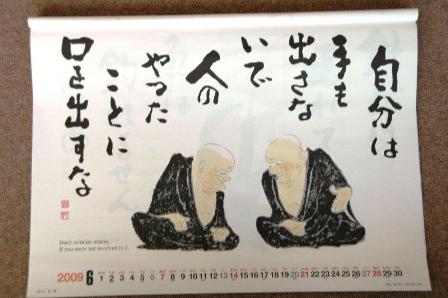 自分は
手も
出さな
いで
人の
やった
ことに
口を出すな
Don't criticize others,
If you were not involved in it.
2009 6 1 2 3 4 5 6 7 8 9 10 11 12 13 14 15 16 17 18 19 20 21 22 23 24 25 26 27 28 29 30